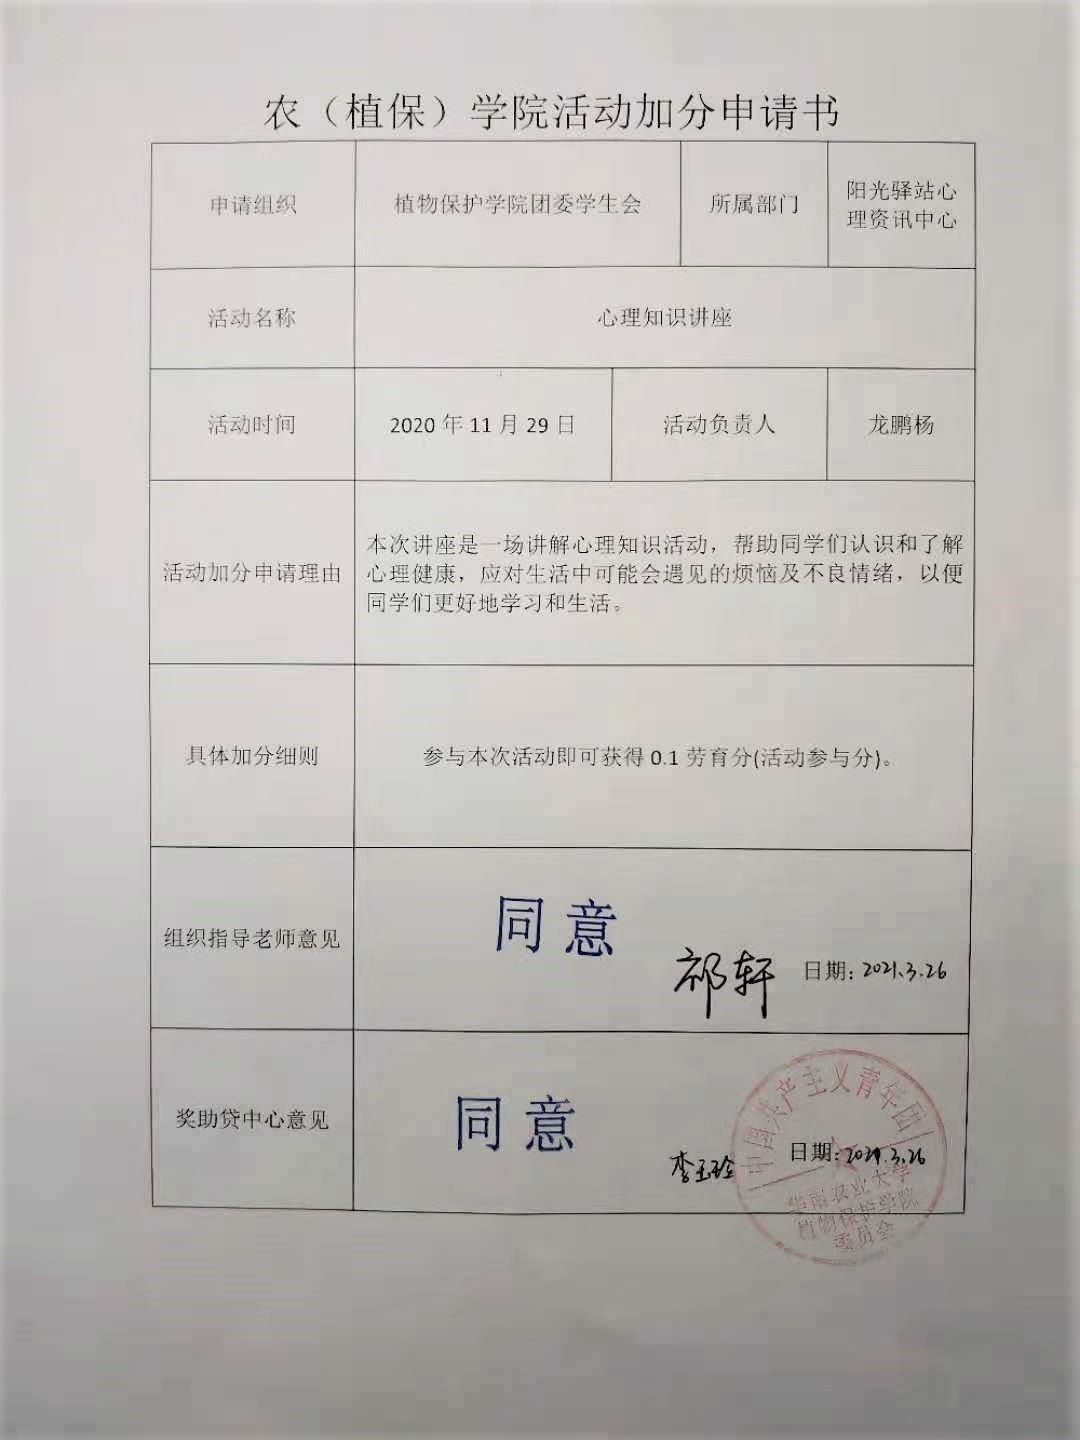 农（植保）学院活动加分申请书
申请组织
植物保护学院团委学生会
所属部门
阳光驿站心
理资讯中心
活动名称
心理知识讲座
活动时间
2020 年 11 月 29 日
活动负责人
龙鹏杨
活动加分申请理由
本次讲座是一场讲解心理知识活动，帮助同学们认识和了解
心理健康，应对生活中可能会遇见的烦恼及不良情绪，以便
同学们更好地学习和生活。
具体加分细则
参与本次活动即可获得 0.1 劳育分(活动参与分)。
组织指导老师意见
同意
祁轩
日期：2021.3.26
奖助贷中心意见
同意
李玉玲
日期：2021.3.26
中国共产主义青年团
华南农业大学
植物保护学院
委员会